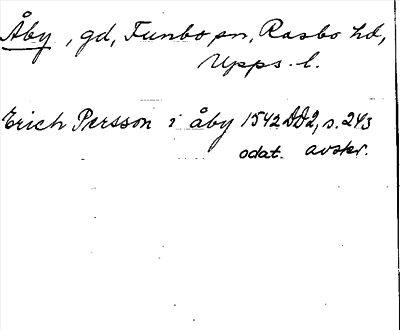 Åby, gd, Funbo sn, Rasbo hd,
Upps. l.
Erich Persson i åby 1542 DD2, s. 243
odat. avskr.